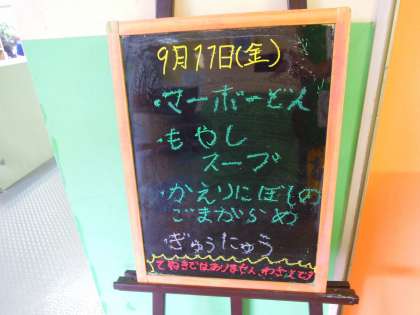 9月11日(金)
・マーボーどん
・もやし
スープ
・かえりにぼしの
ごまがらめ
ぎゅうにゅう
てぬきではありません、わざとです